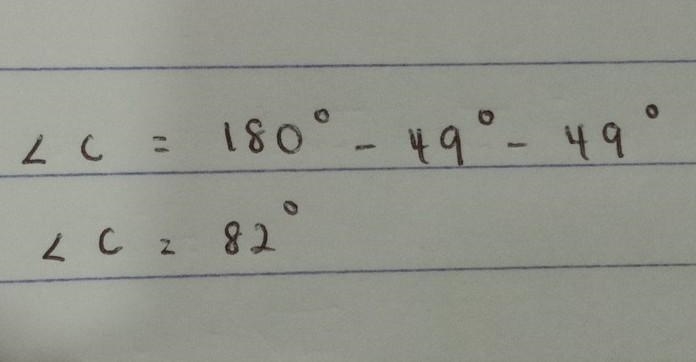 ∠ C = 180° - 49° - 49°
∠ C = 82°